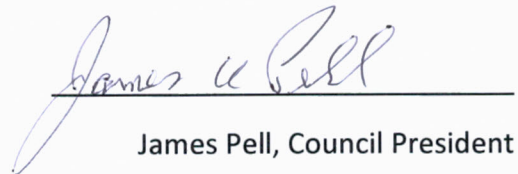 James Pell
James Pell, Council President